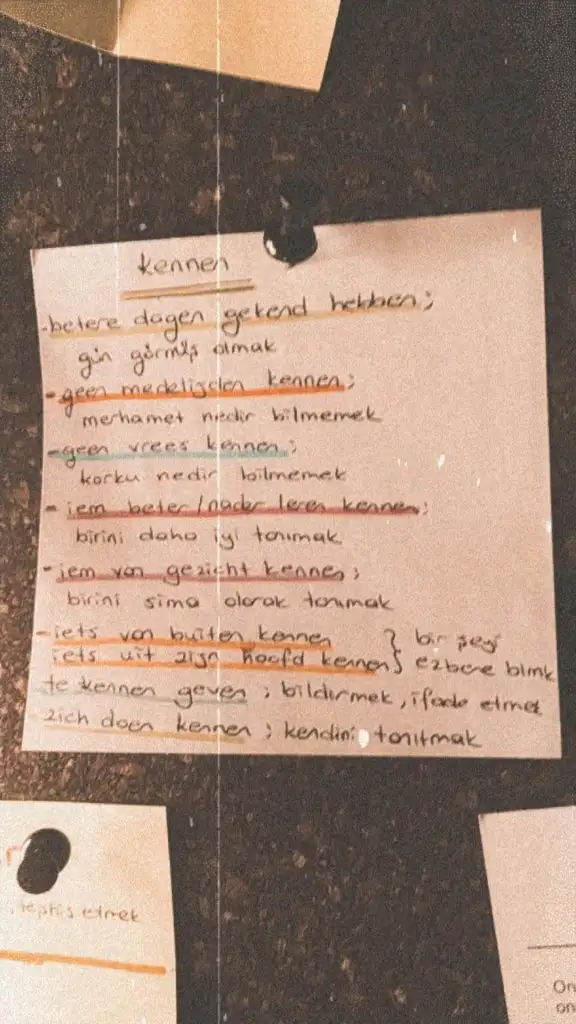 kennen
-betere dagen gekend hebben;
gün görmüş olmak
-geen medelijden kennen;
merhamet nedir bilmemek
-geen vrees kennen;
korku nedir bilmemek
- iem beter/nader leren kennen;
birini daha iyi tanımak
- iem van gezicht kennen;
birini sima olarak tanımak
-iets van buiten kennen } bir şeyi
iets uit zijn hoofd kennen } ezbere blmk
te kennen geven ; bildirmek, ifade etmek
zich doen kennen ; kendini tanıtmak
etmek
On
on